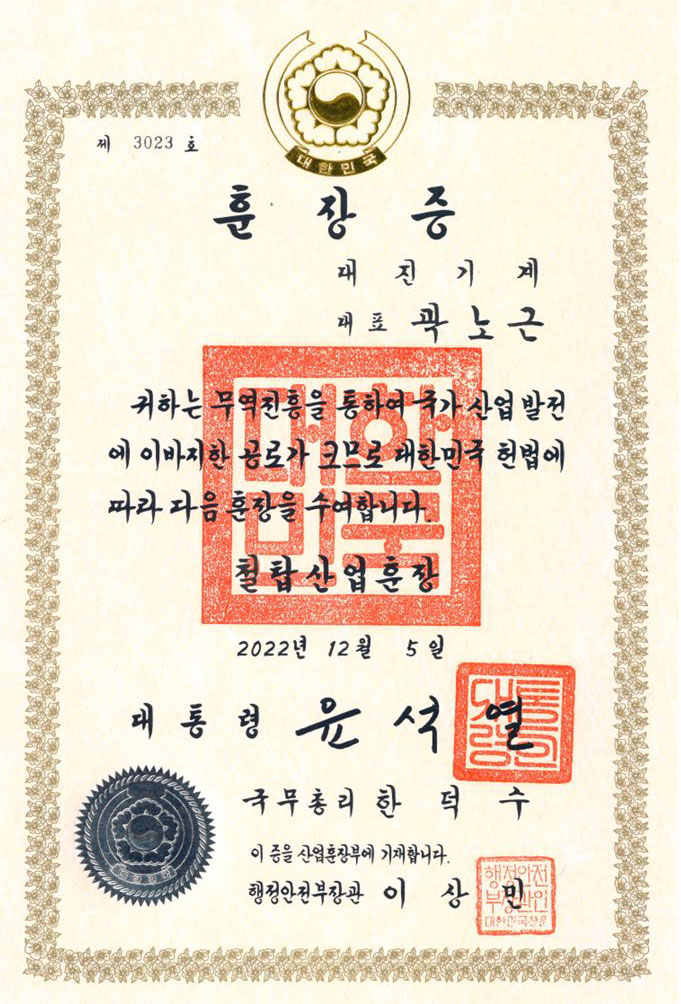 대한민국
제 3023 호
훈장증
대진기계
대표 곽노근
귀하는 무역진흥을 통하여 국가 산업 발전
에 이바지한 공로가 크므로 대한민국 헌법에
따라 다음 훈장을 수여합니다.
대한
민국
철탑산업훈장
2022년 12월 5일
대통령 윤석열
국무총리 한덕수
이 증을 산업훈장부에 기재합니다.
행정안전부장관 이상민
행정안전
부장관인